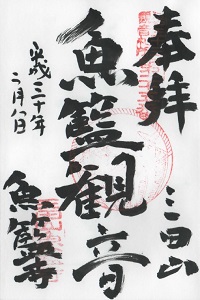 奉拝
三田山
魚籃観音
平成三十年
二月八日
魚籃寺